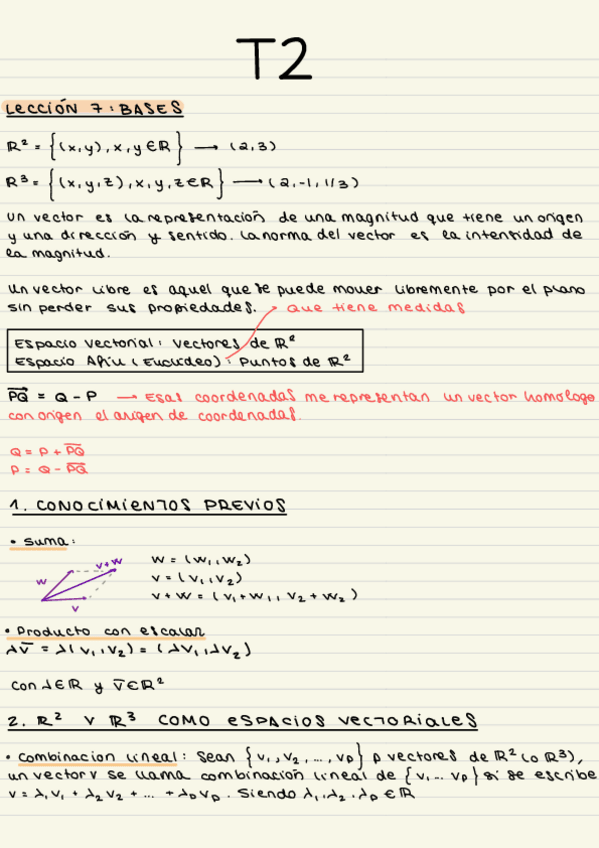 T2
LECCIÓN 7: BASES
R² = {(x,y), x,y ∈ R} → (2,3)
R³ = {(x,y,z), x,y,z ∈ R} → (2,-1,1/3)
Un vector es la representación de una magnitud que tiene un origen
y una dirección y sentido. La norma del vector es la intensidad de
la magnitud.
Un vector libre es aquel que se puede mover libremente por el plano
sin perder sus propiedades. que tiene medidas
Espacio vectorial: vectores de R²
Espacio Afín (Euclídeo): Puntos de R²
PQ⃗ = Q - P → Esas coordenadas me representan un vector homologo
con origen el origen de coordenadas.
Q = P + PQ⃗
P = Q - PQ⃗
1. CONOCIMIENTOS PREVIOS
• Suma:
W = (W₁, W₂)
V = (V₁, V₂)
V + W = (V₁ + W₁, V₂ + W₂)
W
V+W
V
• Producto con escalar
λv̄ = λ(V₁, V₂) = (λV₁, λV₂)
con λ ∈ R y v̄ ∈ R²
2. R² Y R³ COMO ESPACIOS VECTORIALES
• Combinacion lineal: Sean {V₁, V₂, ..., Vp} p vectores de R² (o R³),
un vector v se llama combinación lineal de {V₁ ... Vp} si se escribe
V = λ₁V₁ + λ₂V₂ + ... + λpVp. Siendo λ₁, λ₂, λp ∈ R